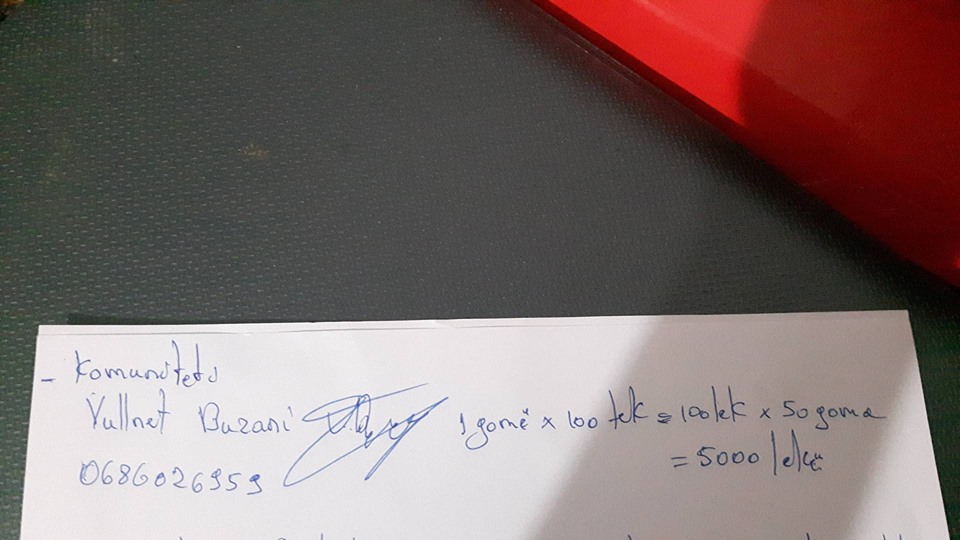 - Komuniteti
Vullnet Buzani 1 gomë x 100 lek = 100 lek x 50 goma
0686026959 = 5000 lekë